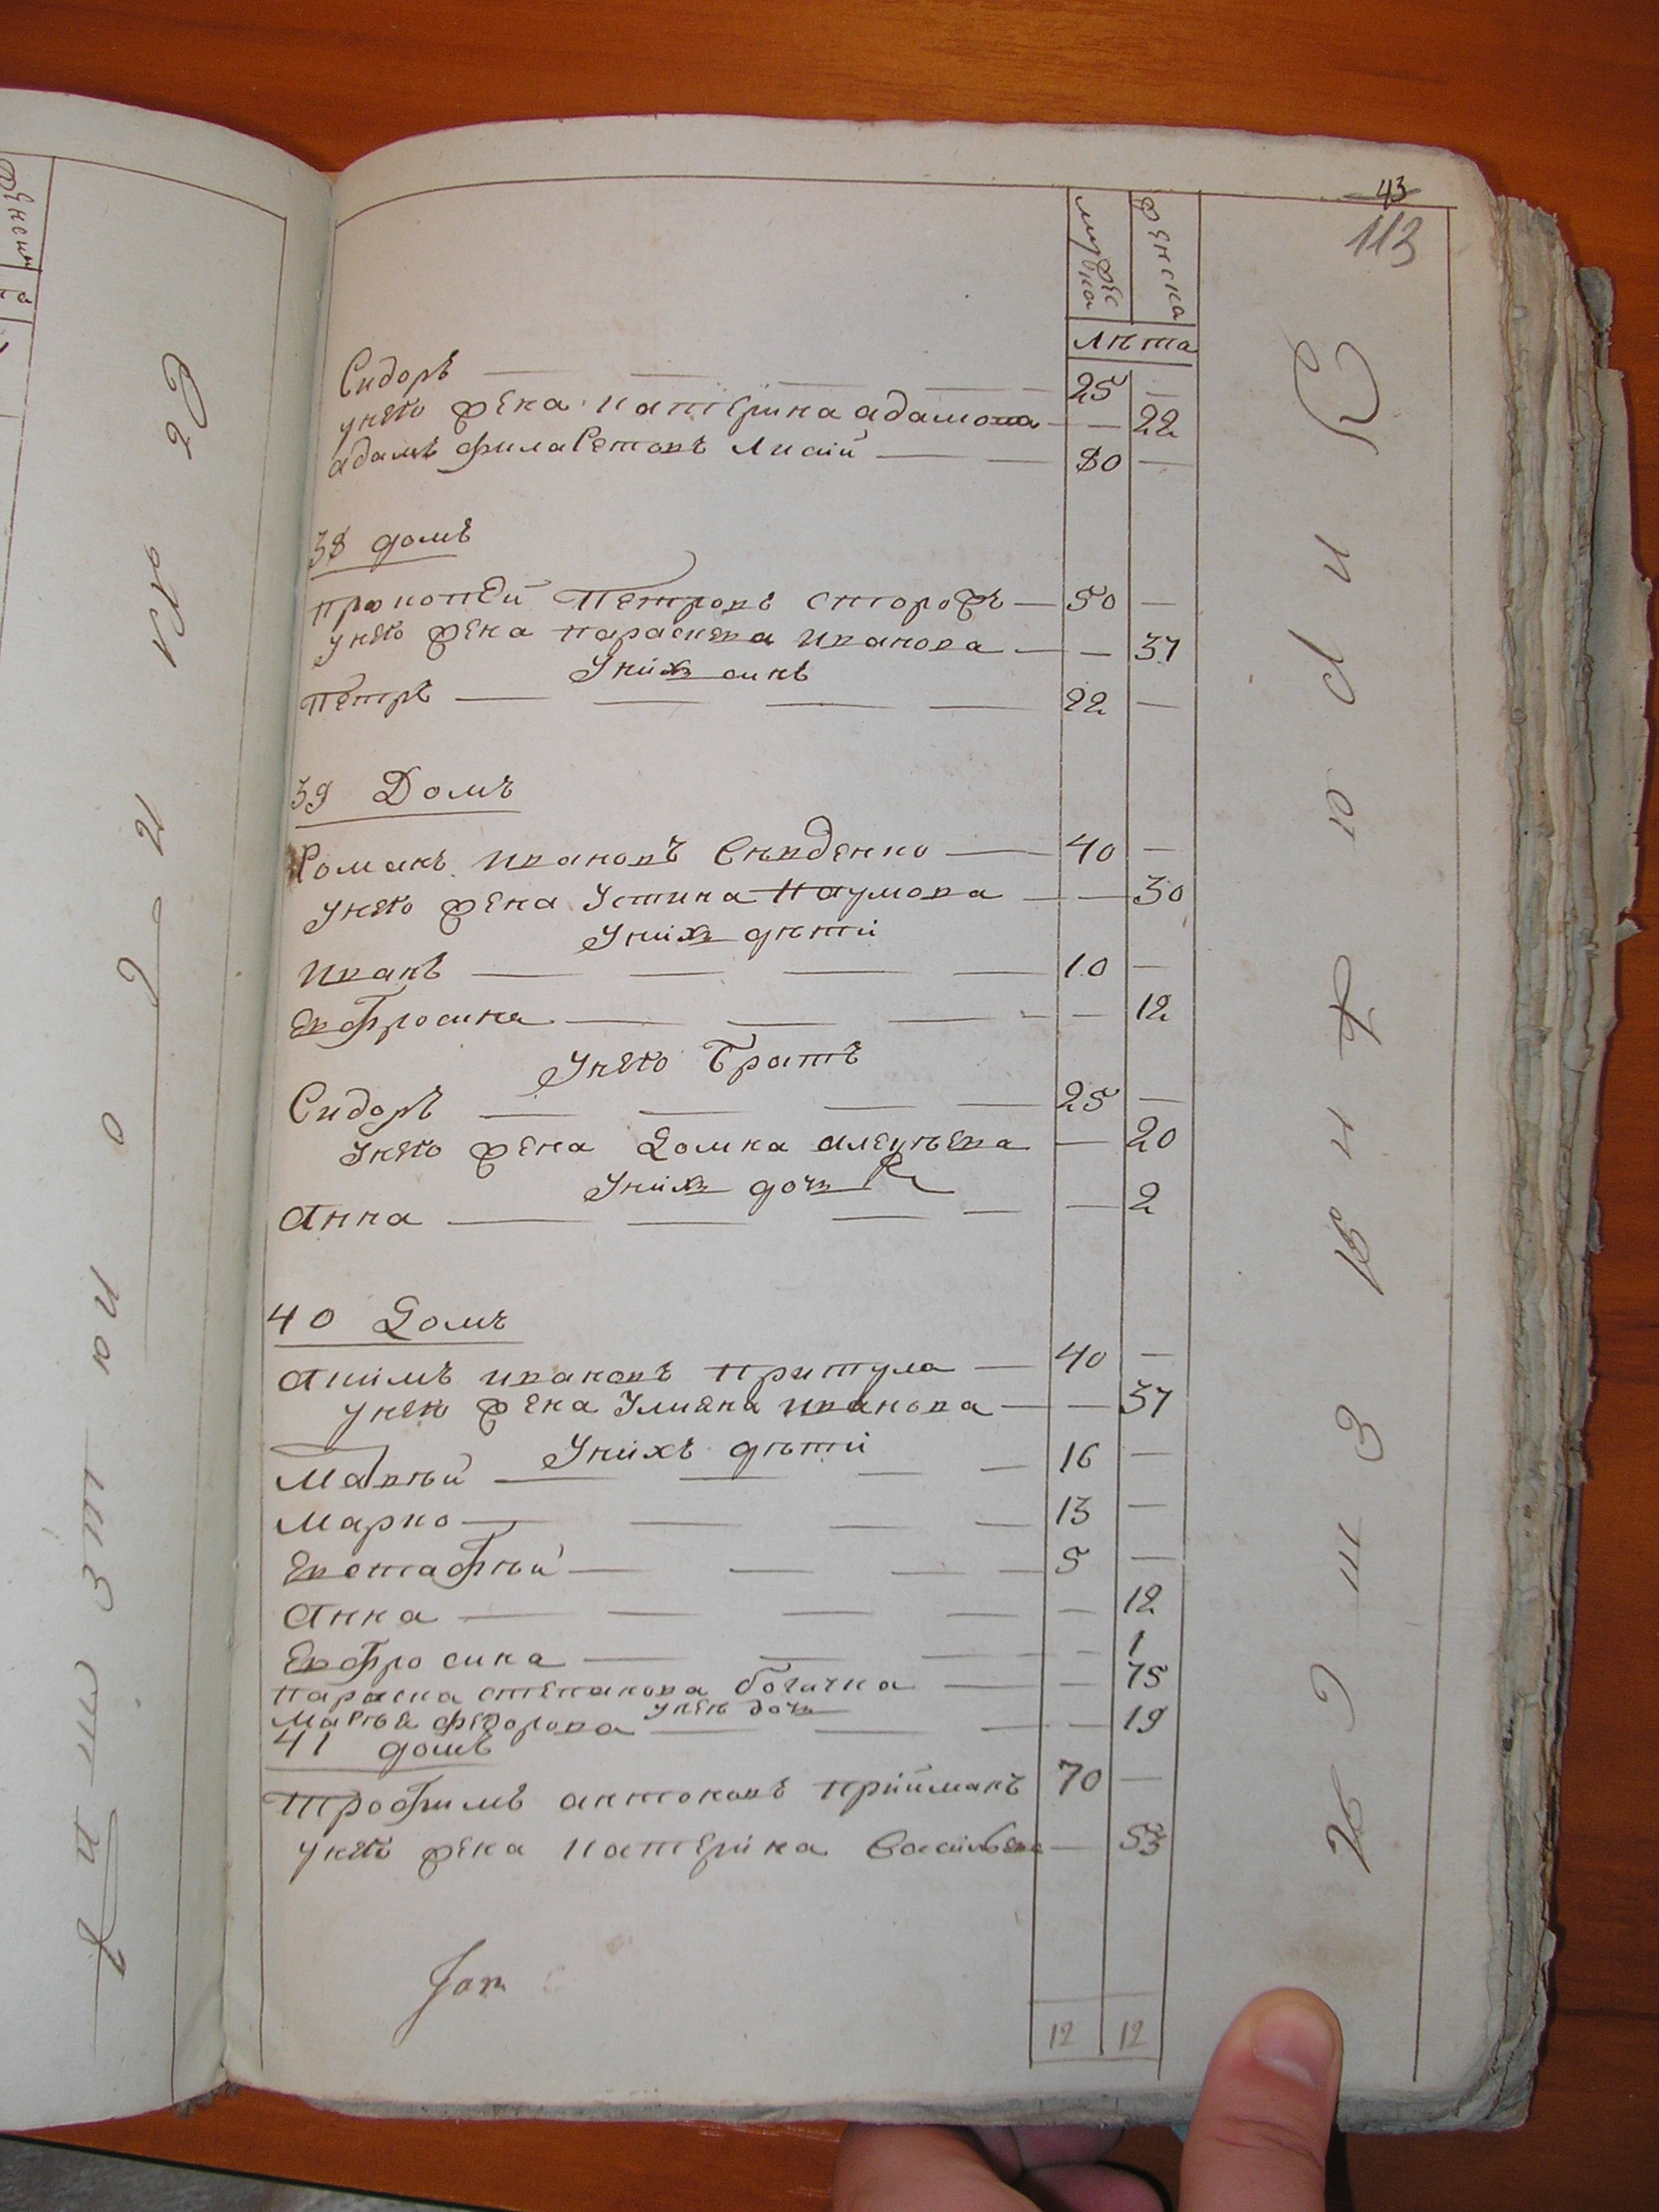 43
113
мужеска женска
лѣта
Сидоръ — — — — 25 —
унего жена катерина адамова — — 22
адамъ филаретовъ Лисій — — 80 —
38 домъ
прокопей Петровъ сторожъ — 50 —
унего жена параскева иванова — — 37
Уніхъ синъ
Петръ — — — — 22 —
39 Домъ
Романъ ивановъ Снѣденко — 40 —
унего жена Устина Наумова — — 30
Уніхъ дѣти
иванъ — — — — 10 —
Евфросина — — — — — 12
Унего братъ
Сидоръ — — — — 25 —
Унего жена Домка алеѯѣева — 20
Уніхъ дочъ
Анна — — — — — 2
40 Домъ
Акимъ ивановъ притула — 40 —
унего жена Улияна иванова — — 37
Уніхъ дѣти
Матвѣй — — — — 16 —
Марко — — — — 13 —
Евстафѣй — — — — 5 —
Анна — — — — — 12
Евфросина — — — — 1
параска степанова — — 75
унеи дочъ
Марѣя федорова — — — — 19
41 домъ
Трофимъ антоновъ прійманъ 70 —
унего жена катеріна Васільева — 53
12 12